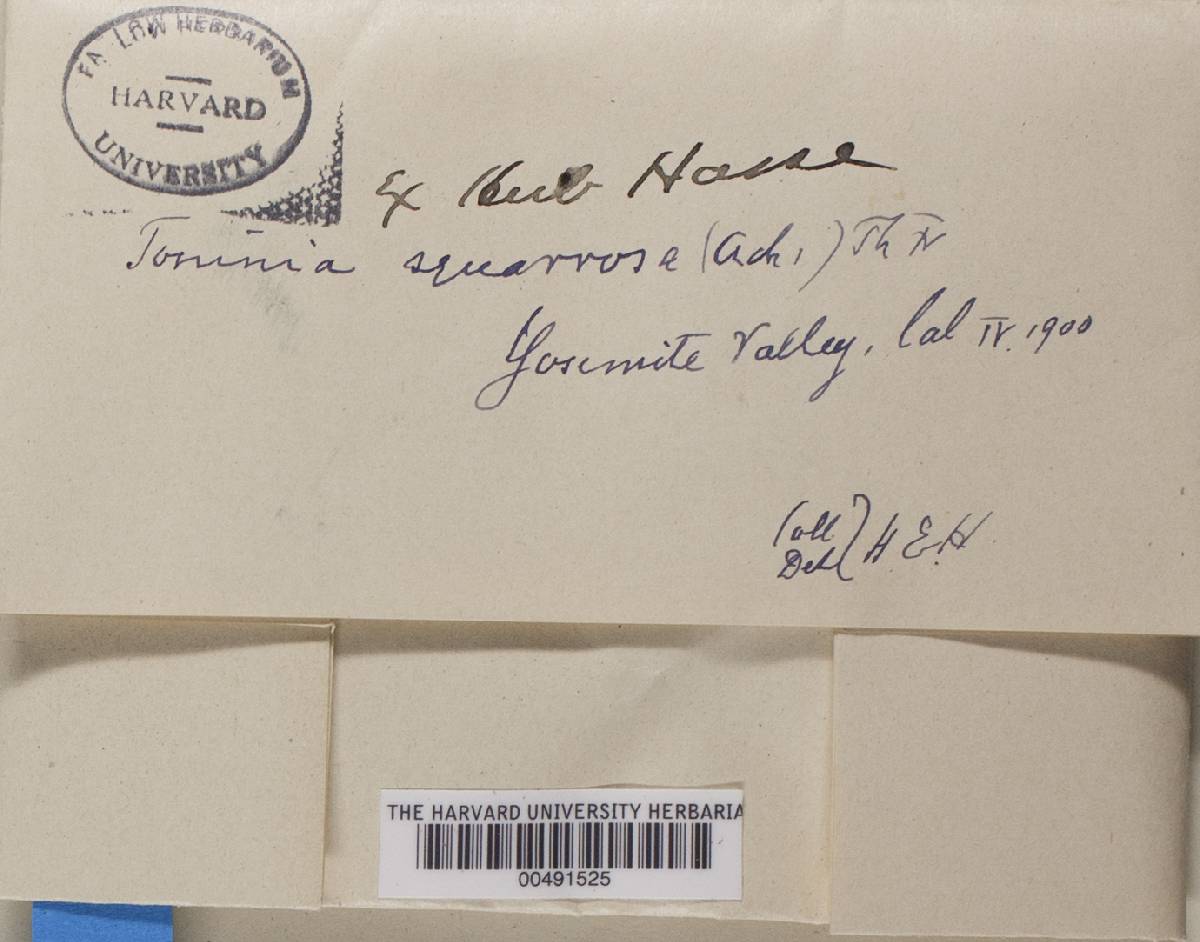 FARLOW HERBARIUM
HARVARD
UNIVERSITY
Ex Herb Hasse
Toninia squarrosa (Ach.) Th Fr
Yosemite Valley, Cal IV. 1900
Coll
Det } H. E. H
THE HARVARD UNIVERSITY HERBARIA
00491525